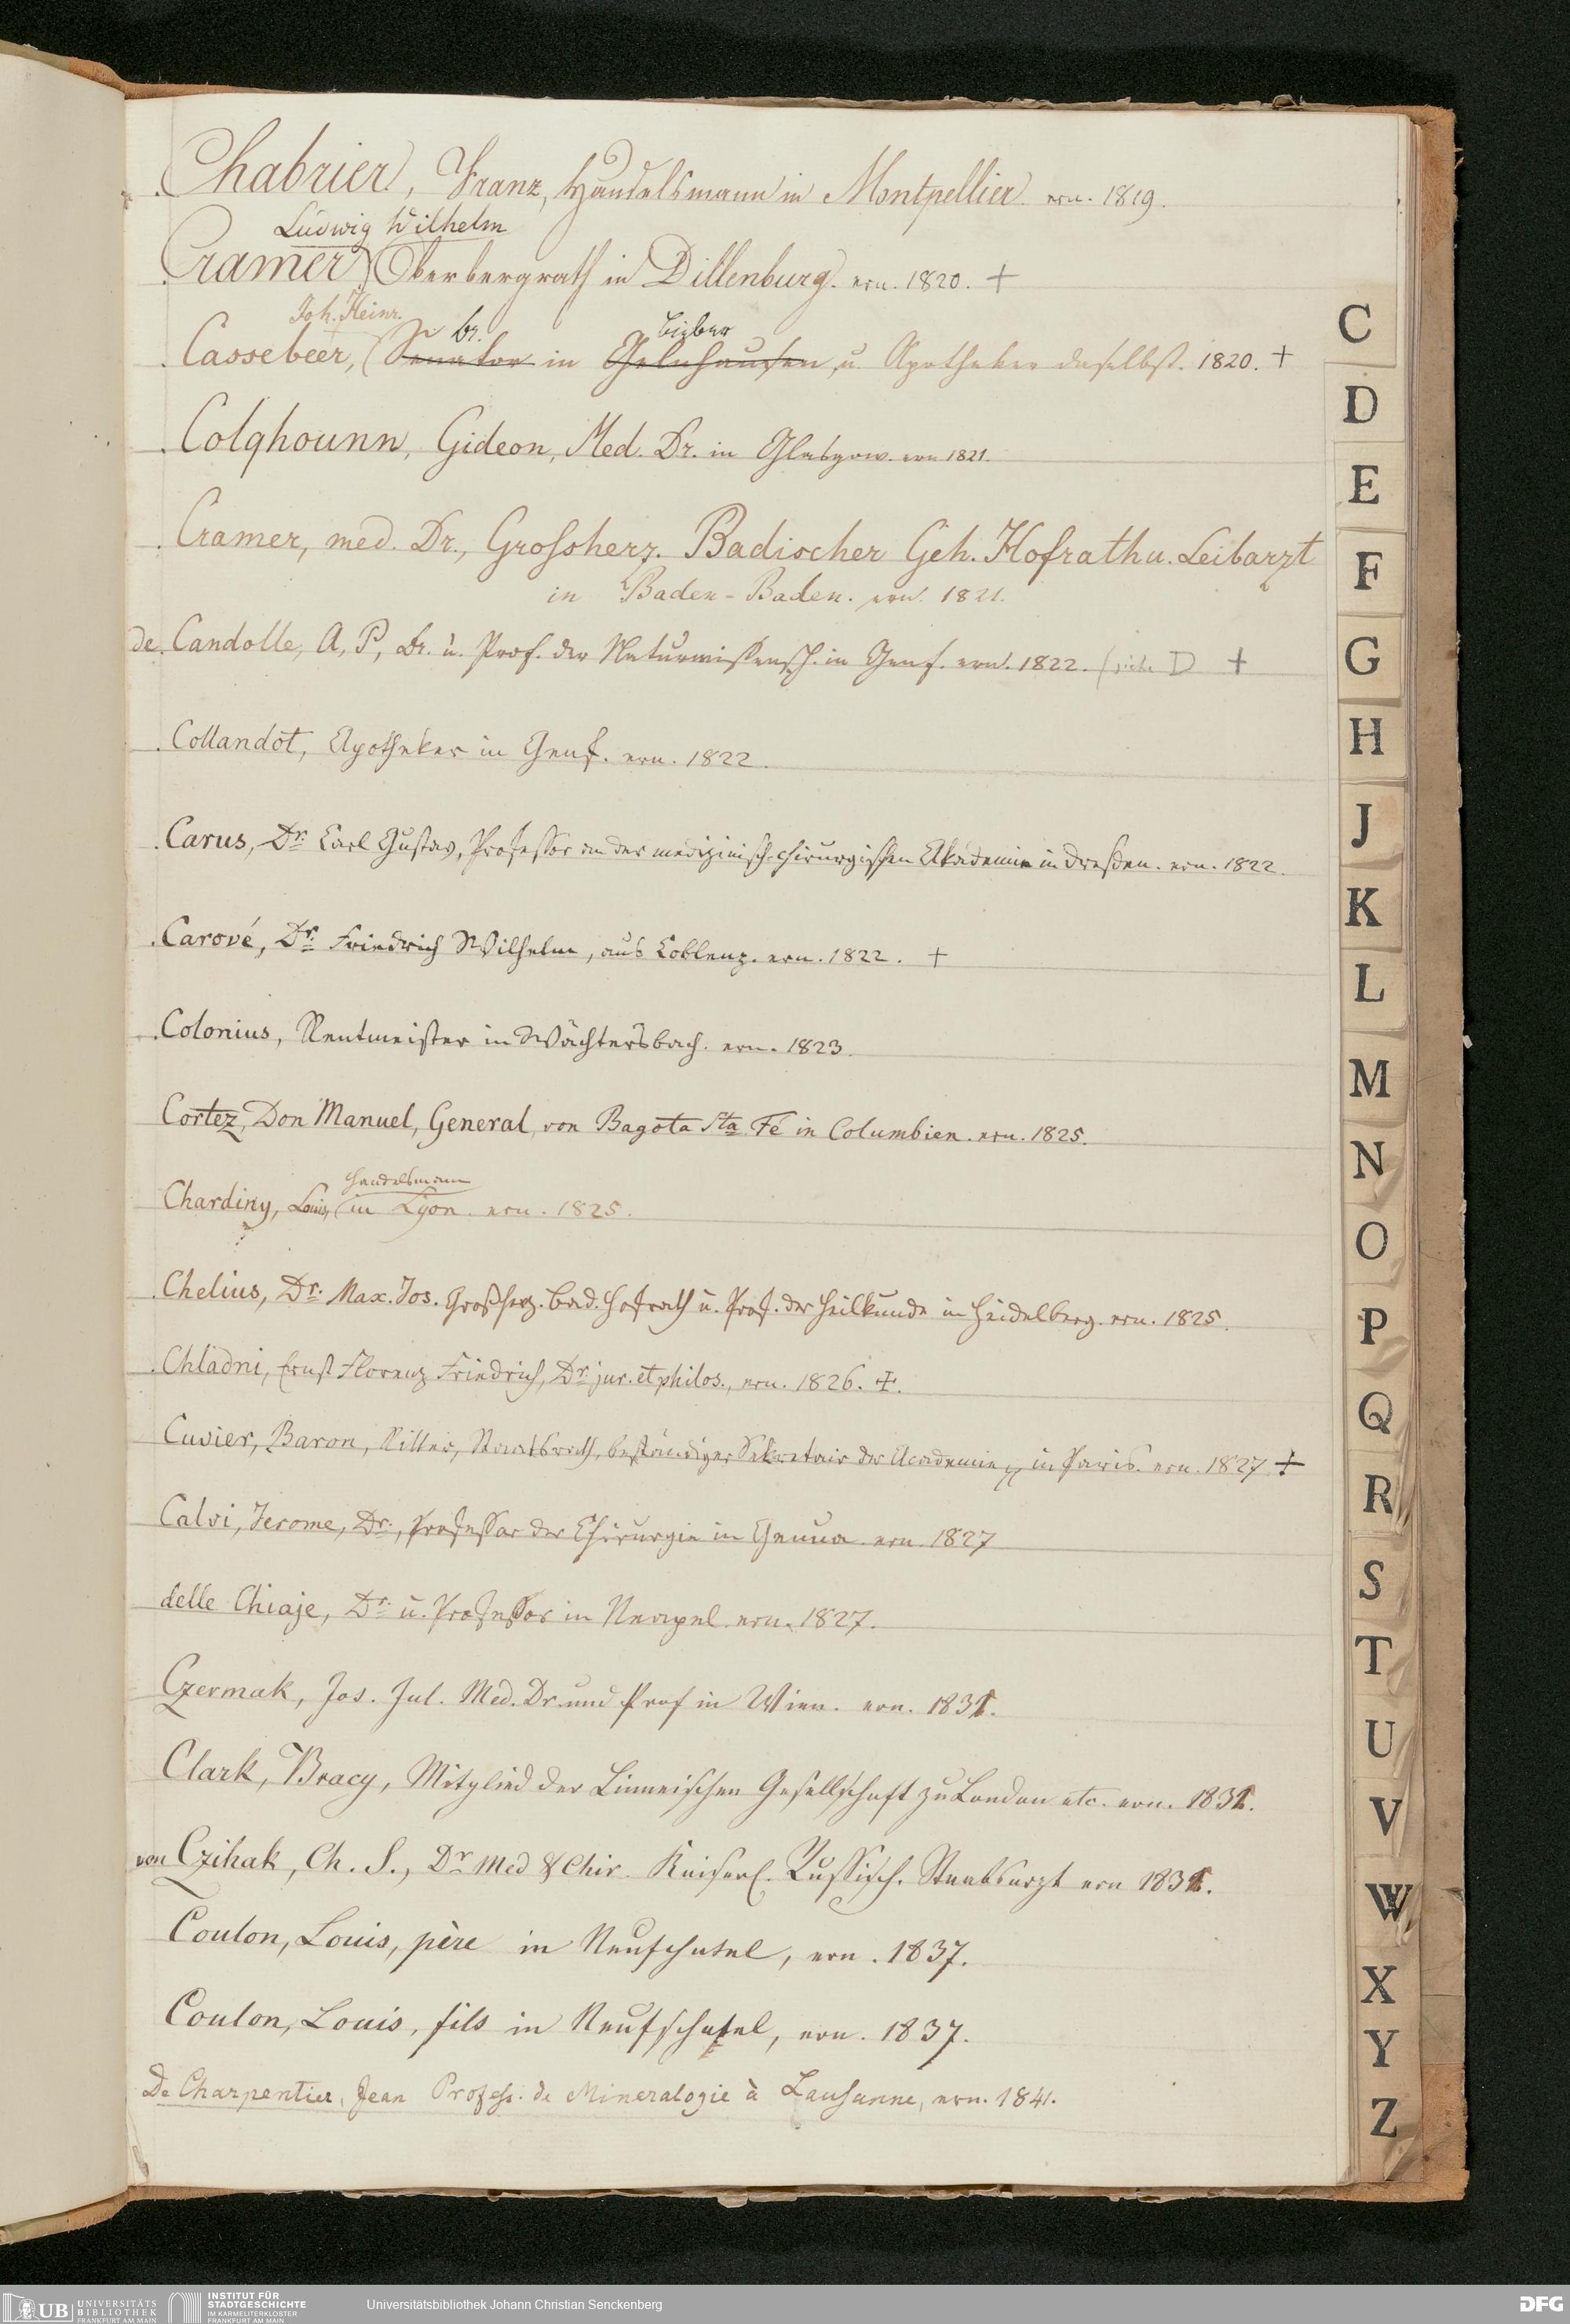 Chabrier, Franz, Handelsmann in Montpellier ern. 1819.
Ludwig Wilhelm
Cramer, Oberbergrath in Dillenburg. ern. 1820. +
Joh. Heinr. Dr. Bieber
Cassebeer, (Senator in Gelnhausen, u. Apotheker daselbst. 1820. +
Colqhounn, Gideon, Med. Dr. in Glasgow. ern 1821.
Cramer, med. Dr., Grossherz. Badischer Geh. Hofrath u. Leibarzt
in Baden-Baden. ern. 1821.
de Candolle, A, P, Dr. u. Prof. der Naturwissensch. in Genf. ern. 1822. (siehe D +
Collandot, Apotheker in Genf. ern. 1822.
Carus, Dr. Carl Gustav, Professor an der medizinisch-chirurgischen Akademie in Dresden. ern. 1822.
Carové, Dr. Friedrich Wilhelm, aus Coblenz. ern. 1822. +
Colonius, Rentmeister in Wächtersbach. ern. 1823.
Cortez, Don Manuel, General, von Bagota Sta. Fé in Columbien. ern. 1825.
Handelsmann
Chardiny, Louis, (in Lyon. ern. 1825.
?
Chelius, Dr. Max. Jos. Großherz. bad. Hofrath u. Prof. der Heilkunde in Heidelberg. ern. 1825.
Chladni, Ernst Florenz Friedrich, Dr. jur. et philos., ern. 1826. +.
Cuvier, Baron, Ritter, Staatsrath, beständiger Sekretair der Academie in Paris. ern. 1827 +
Calvi, Jerome, Dr., Professor der Chirurgie in Genua. ern. 1827
delle Chiaje, Dr. u. Professor in Neapel. ern. 1827.
Czermak, Jos. Jul. Med. Dr. und Prof in Wien. ern. 1831.
Clark, Bracy, Mitglied der Linneischen Gesellschaft zu London etc. ern. 1831.
von Czihak, Ch. S., Dr Med & Chir. Kaiserl. Russisch. Staabsarzt ern 1831.
Coulon, Louis, père in Neufchatel, ern. 1837.
Coulon, Louis, fils in Neufschatel, ern. 1837.
De Charpentier, Jean Profess. de Mineralogie à Lausanne, ern. 1841.
C
D
E
F
G
H
J
K
L
M
N
O
P
Q
R
S
T
U
V
W
X
Y
Z
UB UNIVERSITÄTS BIBLIOTHEK FRANKFURT AM MAIN
INSTITUT FÜR STADTGESCHICHTE IM KARMELITERKLOSTER FRANKFURT AM MAIN
Universitätsbibliothek Johann Christian Senckenberg
DFG